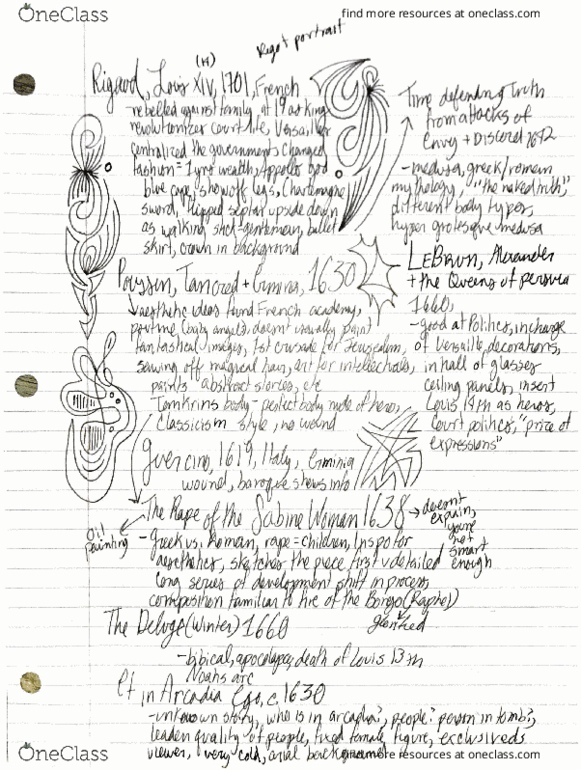 OneClass
find more resources at oneclass.com
Rigot portrait
(14)
Rigaud, Louis XIV, 1701, French
-rebelled against family at 19 as king
revolutionizer court life, Versailles
centralized the governments changed
fashion = 1 yrs wealth, Appollos god
blue cape, show off legs, Charlemagne
sword, flipped septar upside down
as walking stick-gentleman, ballet
skirt, crown in background
Time defending Truth
from attacks of
Envy + Discord 1642
-medusa, greek/roman
mythology, "the naked truth",
different body types,
hyper grotesque medusa
Poussin, Tancred + Erminia, 1630
aesthetic ideas found French academy,
(baby angels) doesn't usually paint
fantastical images, 1st crusade for Jerusalem,
sawing off magical hair, art for intellectuals,
paints abstract stories, etc
body - perfect body nude of hero,
classicism style, no wound
LeBrun, Alexander
+ the Queens of persia
1660,
-good at Politics, in charge
of Versaille decorations,
in hall of glasses
ceiling panels, insert
Louis 14th as heros,
court politics, "prize of
expressions"
Guercino, 1619, Italy, Erminia
wound, baroque shows info
The Rape of the Sabine Woman 1638
doesn't
explain,
you're
not
smart
enough
Oil
painting
-Greek vs. Roman, rape = children, Inspo for
aesthetics, sketches the piece first v detailed
long series of development shift in process,
composition familiar to fire of the Borgo (Raphel)
glorified
The Deluge (Winter) 1660
-biblical, apocalypse, death of Louis 13th
Noahs arc
Et in Arcadia Ego, c. 1630
-unknown story, who is in arcadia?, people? person in tomb?,
leaden quality of people, fixed female figure, excluseds
viewer, very cold, arial background
OneClass
find more resources at oneclass.com